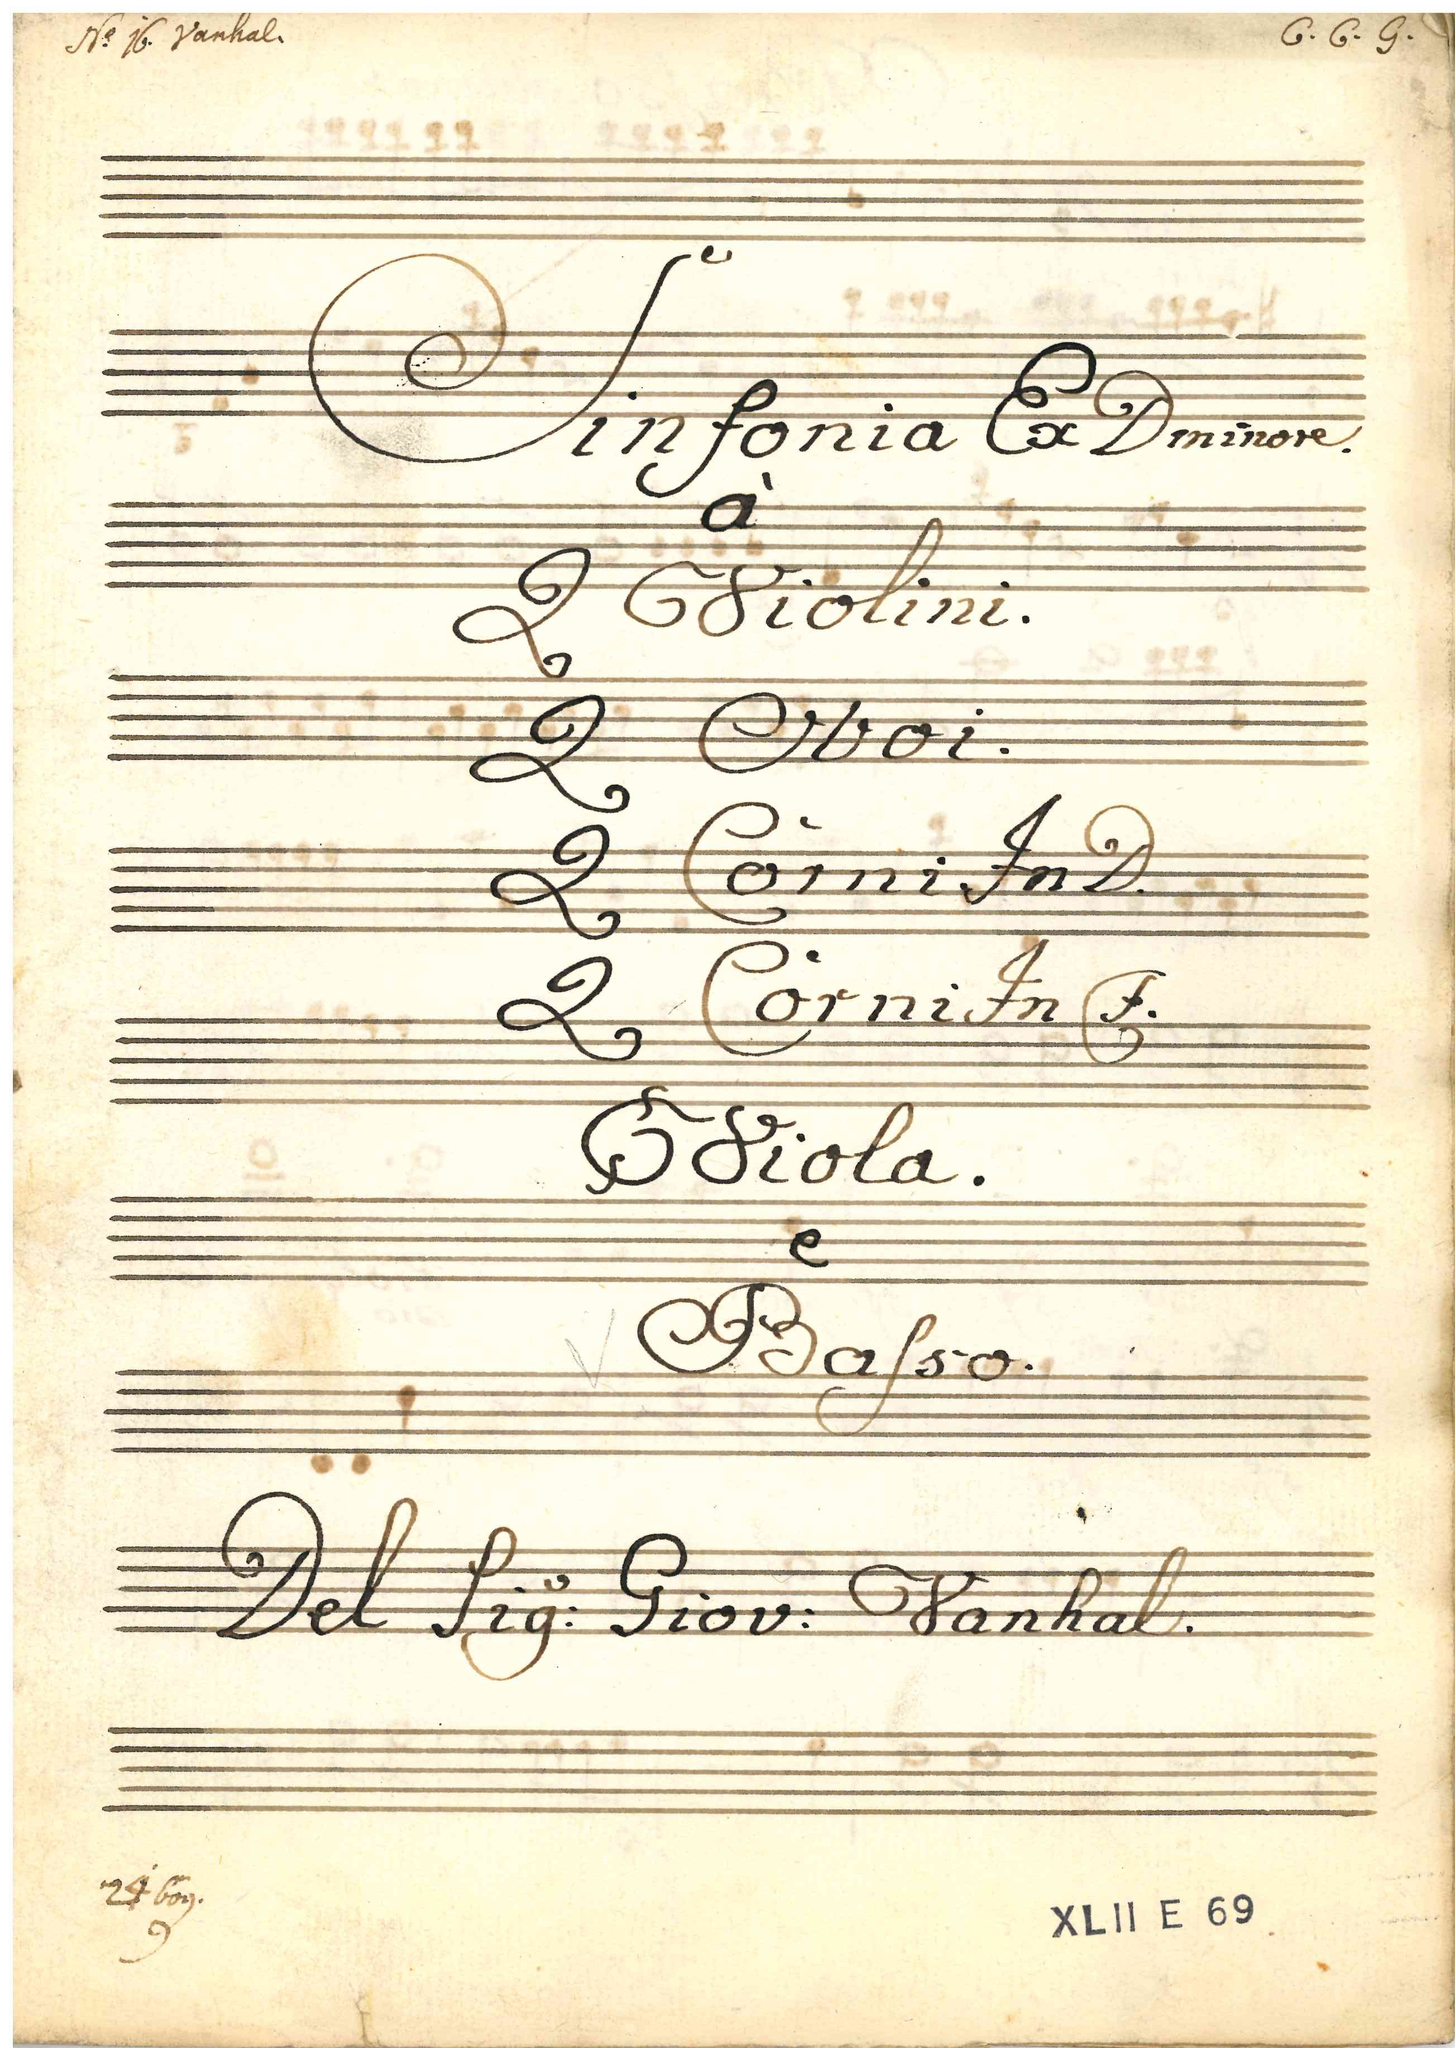 No 16. Vanhal.
C. C. G.
Sinfonia Ex D minore.
à
2 Violini.
2 Oboi.
2 Corni In D.
2 Corni In F.
Viola.
e
Baſso.
Del Sigr: Giov: Vanhal.
24 bög.
XLII E 69